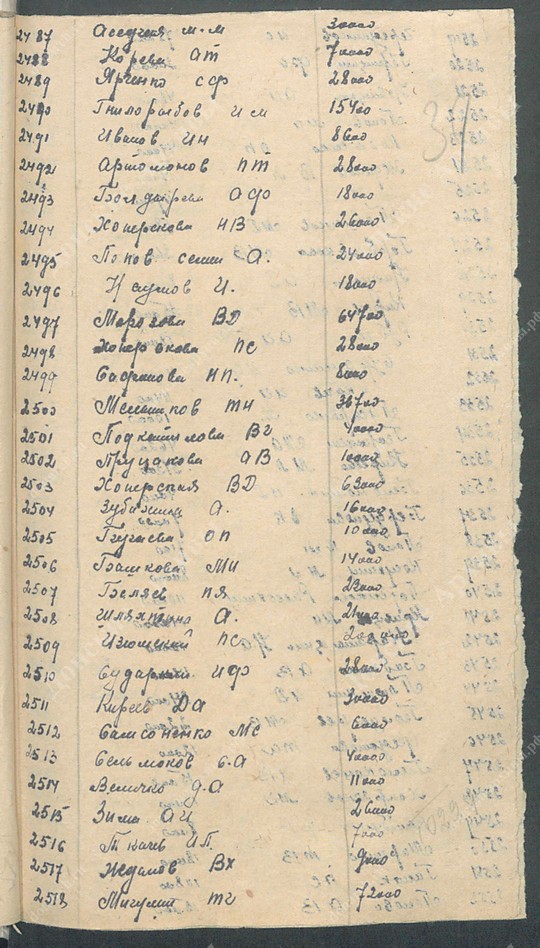 2487 Асеучия М.М 30000
2488 Корева АТ 70000
2489 Ярченко СФ 28000
2490 Гнилорыбов ИМ 15400
2491 Иванов ИН 8600
2492 Артомонов ПТ 28000
2493 Болдырева АФ 18000
2494 Хоперскова НВ 26000
2495 Попов семен А. 24000
2496 Наумов И. 18000
2497 Морозова ВД 64700
2498 Хоперскова ПС 28000
2499 Сафронова НП. 8000
2500 Меньшиков ТН 36700
2501 ВГ 40000
2502 Пруцакова АВ 10000
2503 Хоперская ВД 63000
2504 Зубахина А. 16000
2505 Бугаева ОП 10000
2506 Башкова МИ 14000
2507 Беляев ПЯ 23000
2508 Шляхтина А. 21000
2509 Изюмский ПС
2510 Сударкин ИФ 28000
2511 Киреев ДА 30000
2512 Самсоненко МС 6000
2513 Сельмоков Е.А 40000
2514 Величко Д.А 11000
2515 Зима АИ 26000
2516 Ткачев И.П. 7000
2517 Жданов ВХ 9000
2518 Мигулин ТГ 72000
31